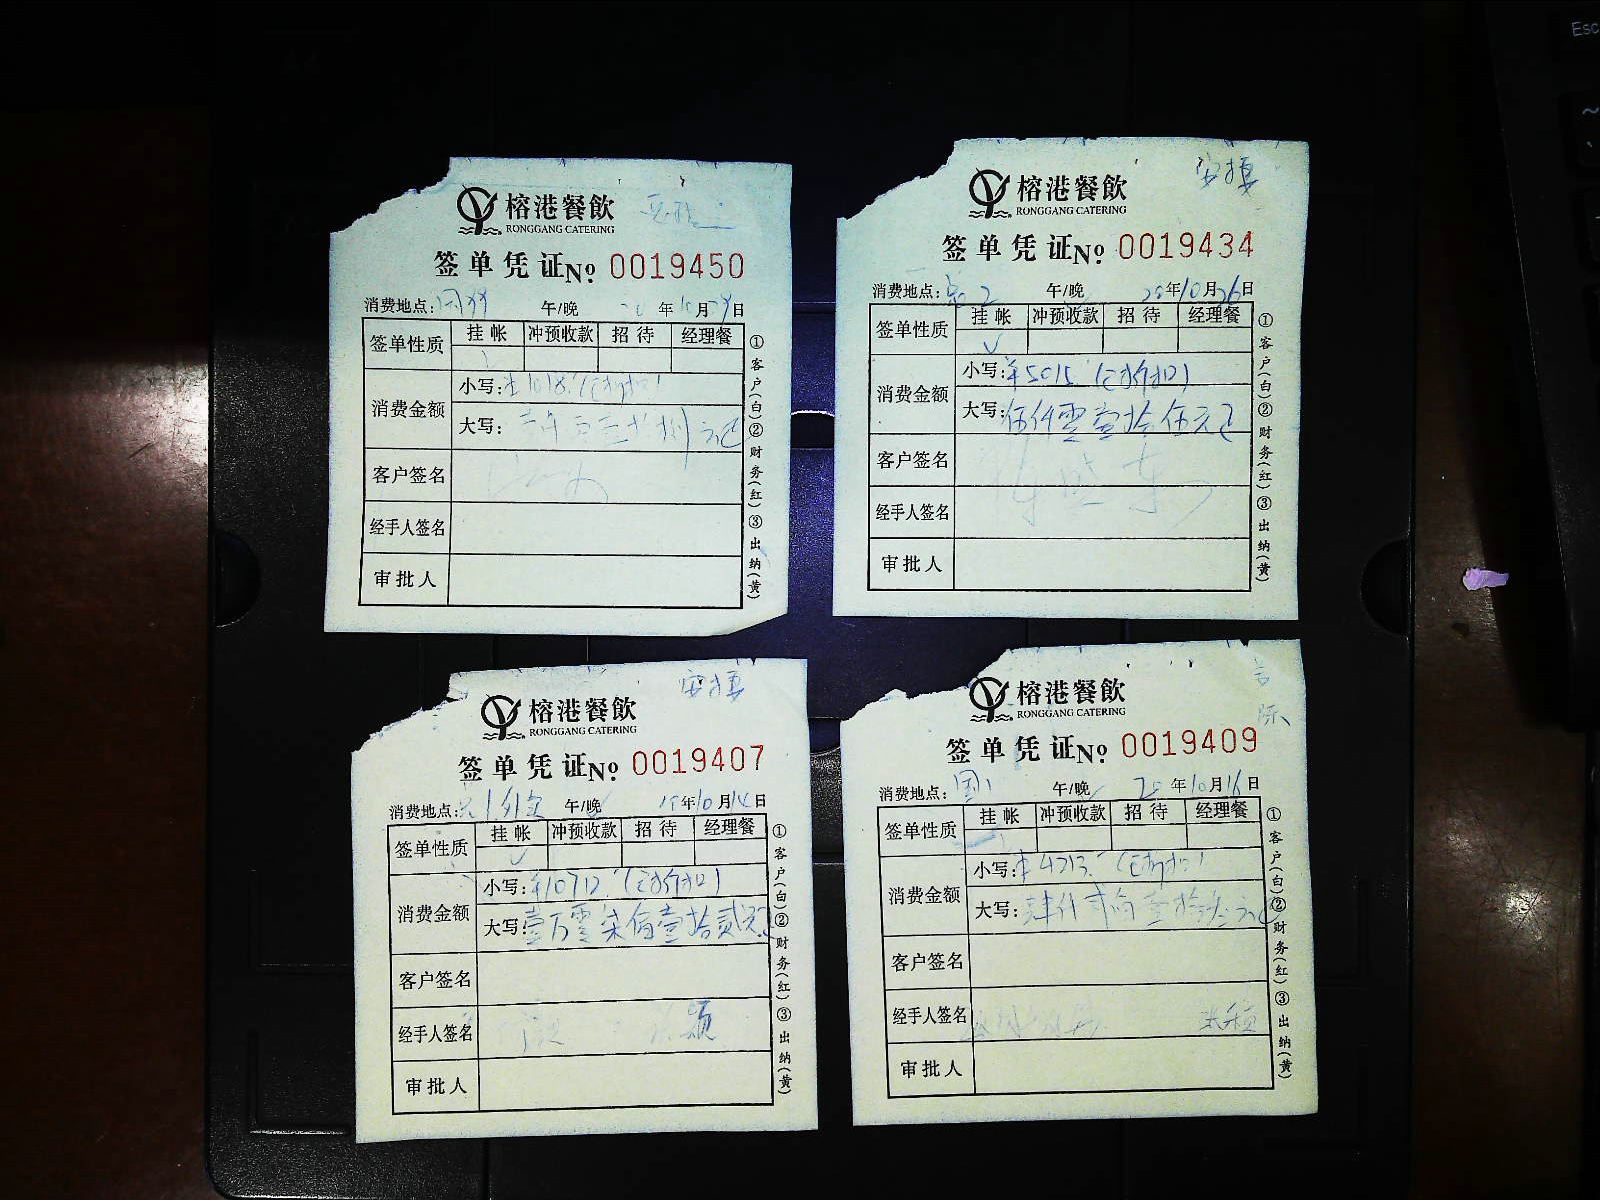 榕港餐飲
RONGGANG CATERING
签单凭证 No 0019450
消费地点: 午/晚 年10月29日
签单性质 挂帐 冲预收款 招待 经理餐
消费金额 小写:¥1018.(已折扣)
大写:
客户签名
经手人签名
审批人
①客户(白)②财务(红)③出纳(黄)
安捷
榕港餐飲
RONGGANG CATERING
签单凭证 No 0019434
消费地点: 2 午/晚 20年10月26日
签单性质 挂帐 冲预收款 招待 经理餐
✓
消费金额 小写:¥5015.(已折扣)
大写:伍仟零壹拾伍元正
客户签名
经手人签名
审批人
①客户(白)②财务(红)③出纳(黄)
安捷
榕港餐飲
RONGGANG CATERING
签单凭证 No 0019407
消费地点: 午/晚 年10月14日
签单性质 挂帐 冲预收款 招待 经理餐
✓
消费金额 小写:¥10712.(已折扣)
大写:壹万零柒佰壹拾贰元正
客户签名
经手人签名 颖
审批人
①客户(白)②财务(红)③出纳(黄)
榕港餐飲
RONGGANG CATERING
签单凭证 No 0019409
消费地点:国1 午/晚 20年10月16日
签单性质 挂帐 冲预收款 招待 经理餐
消费金额 小写:¥4213.(已折扣)
大写:肆仟贰佰壹拾叁元正
客户签名
经手人签名
审批人
①客户(白)②财务(红)③出纳(黄)
Esc